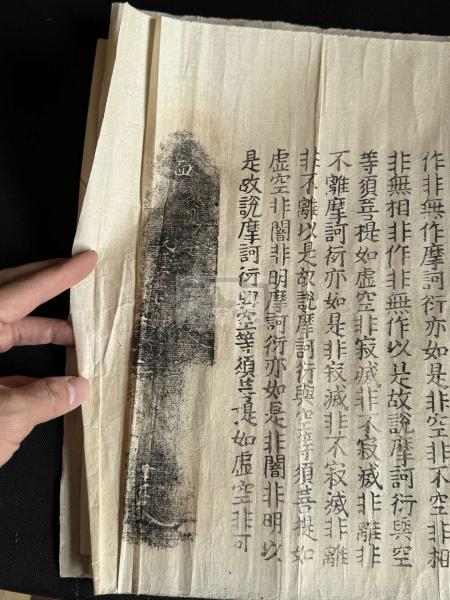 作非無作摩訶衍亦如是非空非不空非相
非無相非作非無作以是故說摩訶衍與空
等須菩提如虛空非寂滅非不寂滅非離非
不離摩訶衍亦如是非寂滅非不寂滅非離
非不離以是故說摩訶衍與空等須菩提如
虛空非闇非明摩訶衍亦如是非闇非明以
是故說摩訶衍與空等須菩提如虛空非可